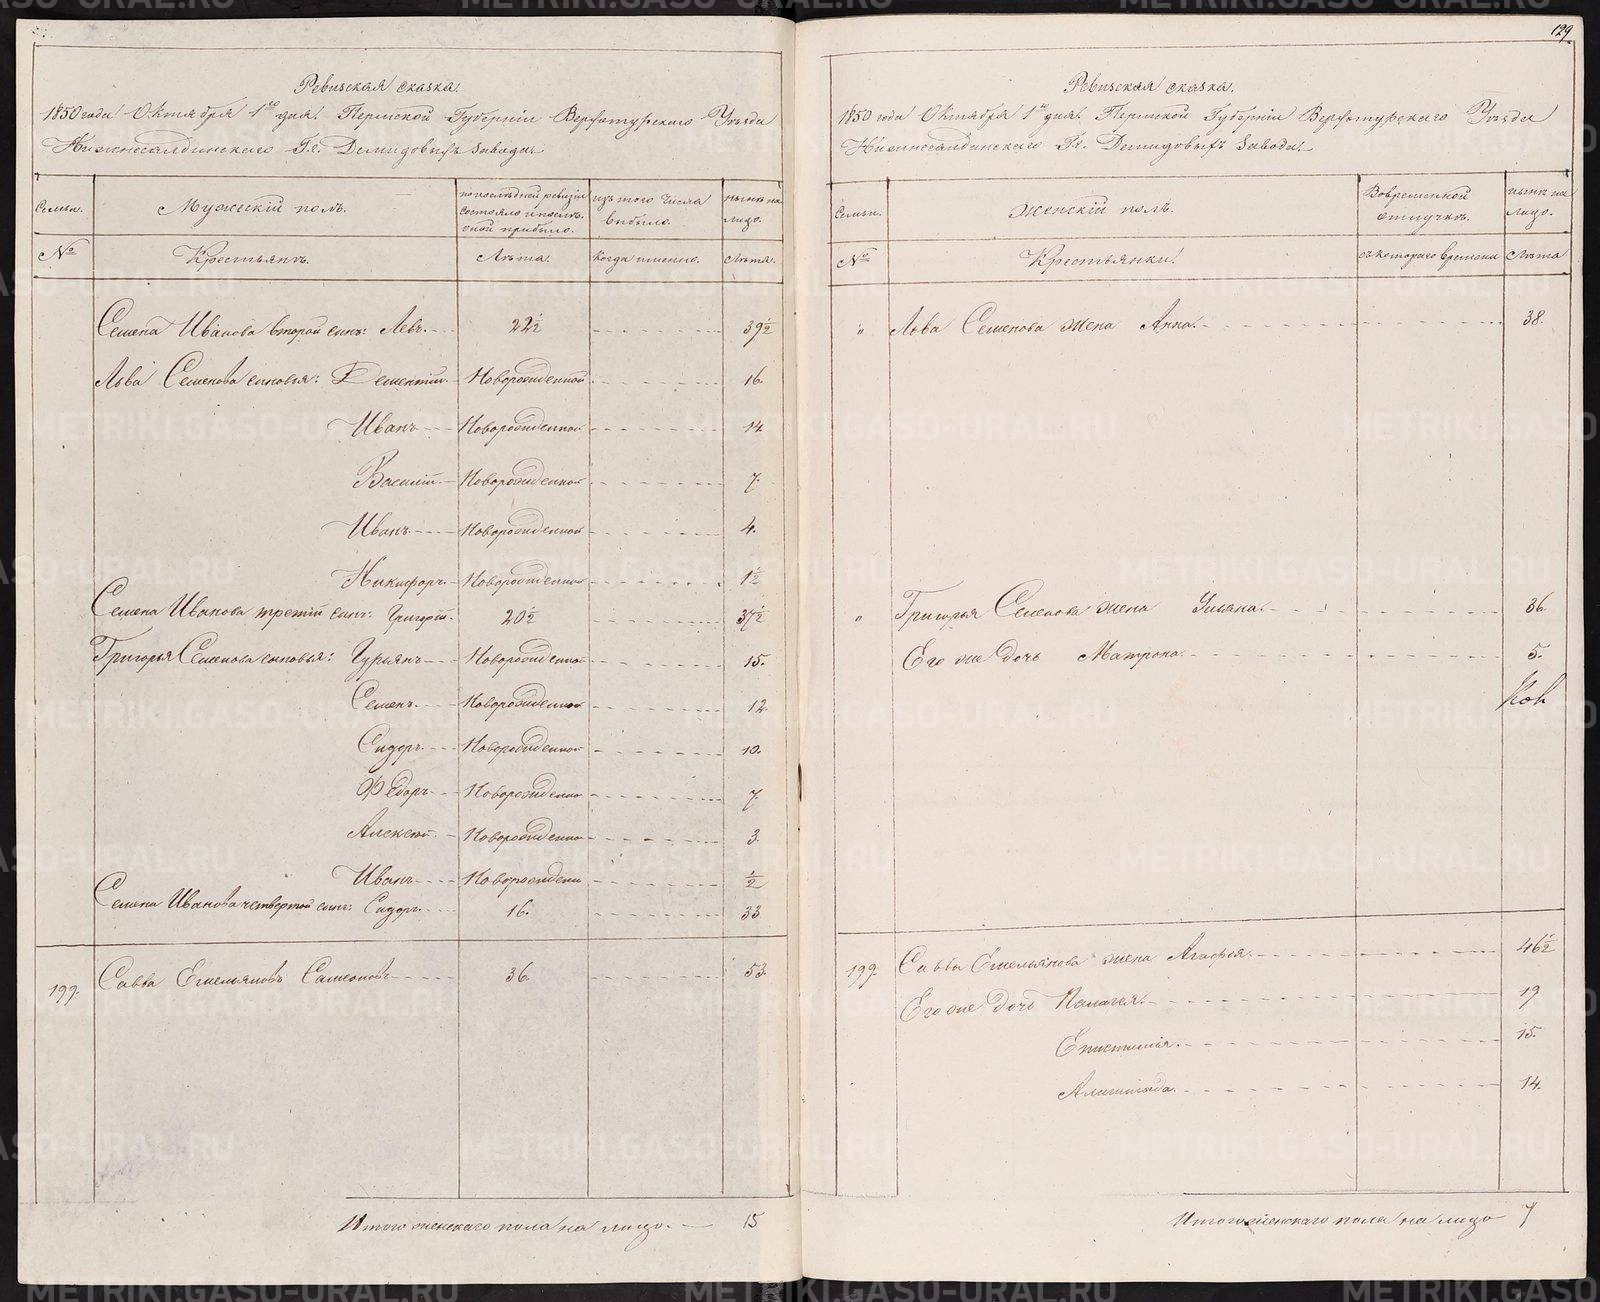 Ревизская сказка.
1850 года Октября 1го дня. Пермской Губерніи Верхотурскаго Уѣзда
Нижнесалдинскаго Г.г. Демидовыхъ завода
Семьи. Мужескій полъ. по послѣдней ревизіи состояло и послѣ оной прибыло. изъ того числа выбыло. нынѣ на лицо.
№ Крестьянъ. Лѣта. Когда именно. Лѣта.
Семена Иванова второй сынъ: Левъ. 22½ 39½
Льва Семенова сыновья: Дементій. Новорожденной 16.
Иванъ Новорожденной 14
Василій. Новорожденной 7.
Иванъ Новорожденной 4.
Никифоръ. Новорожденной 1½
Семена Иванова третій сынъ: Григорій. 20½ 37½
Григорья Семенова сыновья: Гурьянъ Новорожденной 15.
Семенъ. Новорожденной 12.
Сидоръ Новорожденной 10.
Ѳедоръ Новорожденной 7
Алексѣй. Новорожденной 3.
Иванъ Новорожденной ½
Семена Иванова четвертой сынъ: Сидоръ. 16. 33
199. Савва Емельяновъ Самсоновъ 36. 53.
Итого женскаго пола на лицо. 15
129
Ревизская сказка.
1850 года Октября 1го дня. Пермской Губерніи Верхотурскаго Уѣзда
Нижнесалдинскаго Г.г. Демидовыхъ завода.
Семьи. Женскій полъ. Во временной отлучкѣ. нынѣ на лицо.
№ Крестьянки. съ котораго времени Лѣта
" Льва Семенова жена Анна. 38.
" Григорья Семенова жена Ульяна. 36.
Его же дочь Матрона. 5.
199. Саввы Емельянова жена Агафья. 46½
Его же дочь Палагея. 19
Епистимія. 15.
14.
Итого женскаго пола на лицо 7
METRIKI.GASO-URAL.RU